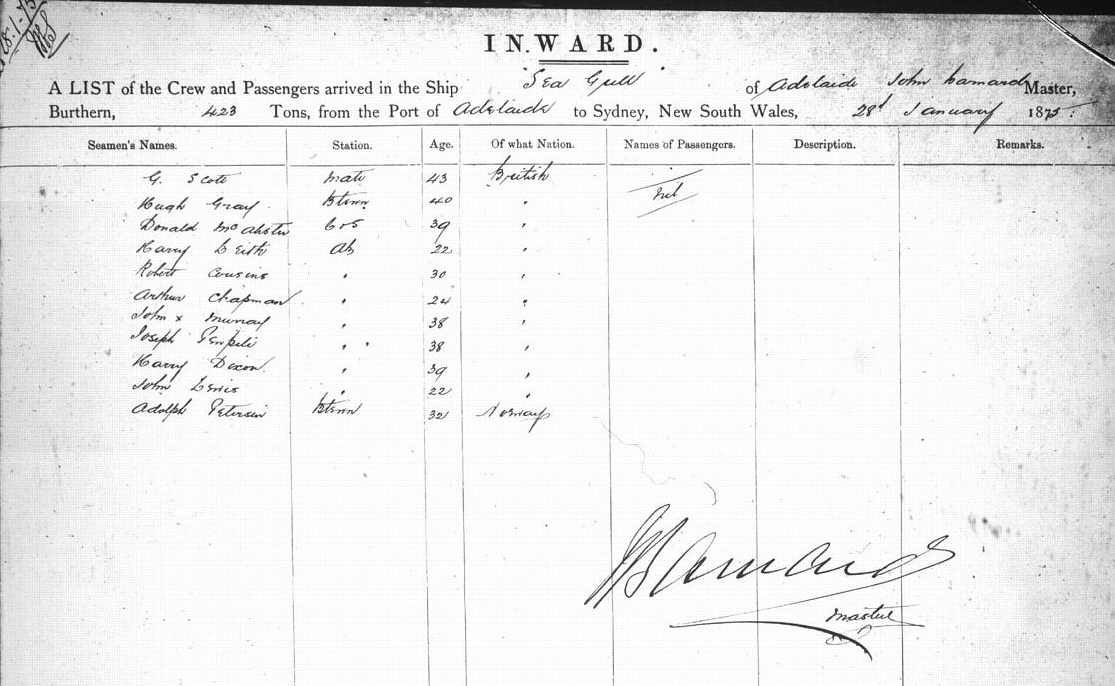 28/1/75
INWARD.
A LIST of the Crew and Passengers arrived in the Ship "Sea Gull" of Adelaide John Lamard Master,
Burthern, 423 Tons, from the Port of Adelaide to Sydney, New South Wales, 28d January 1875.
Seamen's Names. Station. Age. Of what Nation. Names of Passengers. Description. Remarks.
G. Scott Mate 43 British Nil
Hugh Gray 40 "
Donald McAlister C & S 39 "
Harry Leith Ab 22 "
Robert Cousins " 30 "
Arthur Chapman " 24 "
John x Murray " 38 "
Joseph " 38 "
Harry Dixon " 39 "
John Lewis " 22 "
Adolph Petersen 32 Norway
Master